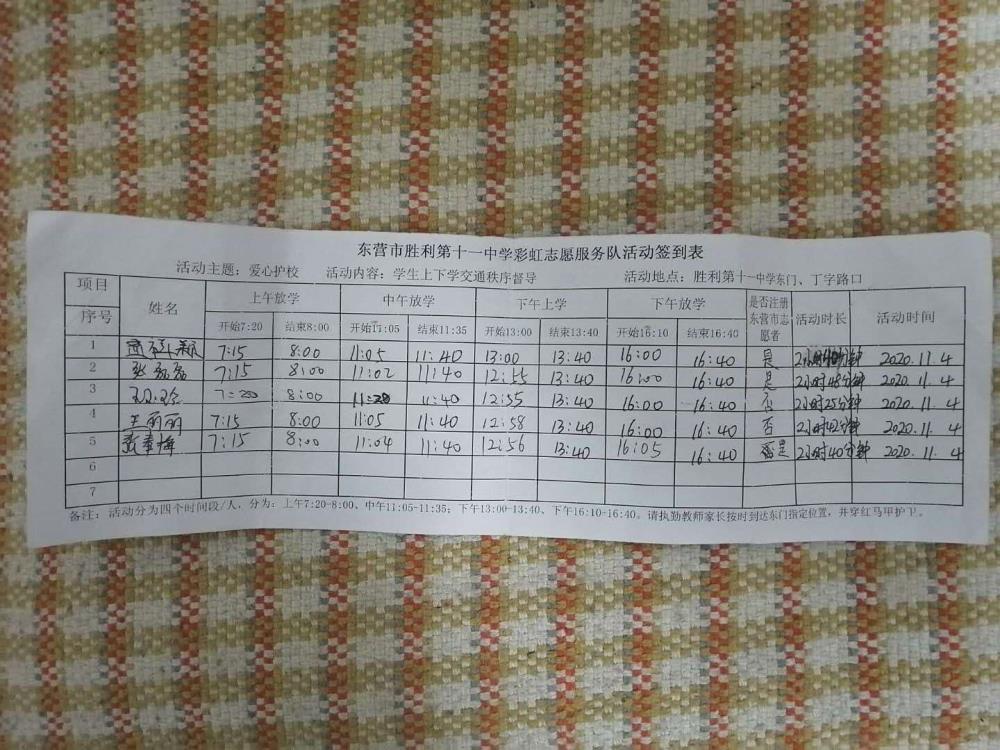 东营市胜利第十一中学彩虹志愿服务队活动签到表
活动主题：爱心护校 活动内容：学生上下学交通秩序督导 活动地点：胜利第十一中学东门、丁字路口
项目 序号 姓名 上午放学 中午放学 下午上学 下午放学 是否注册东营市志愿者 活动时长 活动时间
开始7:20 结束8:00 开始11:05 结束11:35 开始13:00 结束13:40 开始16:10 结束16:40
1 7:15 8:00 11:05 11:40 13:00 13:40 16:00 16:40 是 2小时 分钟 2020.11.4
2 张磊磊 7:15 8:00 11:02 11:40 12:55 13:40 16:00 16:40 是 2小时48分钟 2020.11.4
3 8:00 11:20 11:40 12:55 13:40 16:00 16:40 否 2小时25分钟 2020.11.4
4 王丽丽 7:15 8:00 11:05 11:40 12:58 13:40 16:00 16:40 否 2小时42分钟 2020.11.4
5 张春梅 7:15 8:00 11:04 11:40 12:56 13:40 16:05 16:40 是 2小时40分钟 2020.11.4
6
7
备注：活动分为四个时间段/人，分为：上午7:20-8:00、中午11:05-11:35；下午13:00-13:40、下午16:10-16:40。请执勤教师家长按时到达东门指定位置，并穿红马甲护卫。